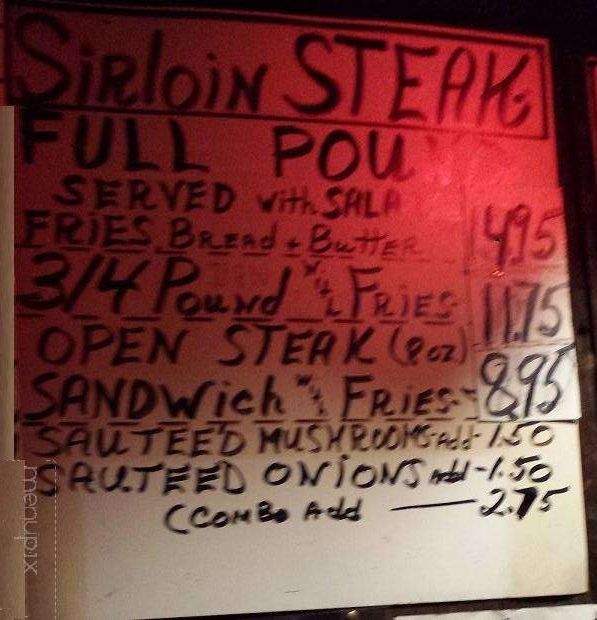 SiRloiN STEAK
FULL POU
SERVED with SALA
FRiES BREAD + BuTTER 495
3/4 Pound w/ FRiES 11.75
OPEN STEAK (8oz)
SANDWich w/ FRiES 8.95
SAUTEED MUSHROOMS Add - 1.50
SAUTEED ONiONS Add - 1.50
(COMBO Add — 2.75
menupix